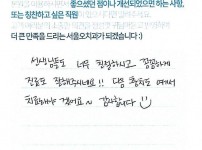 좋으셨던 점이나 개선되었으면 하는 사항,
또는 칭찬하고 싶은 직원
더 큰 만족을 드리는 서울오치과가 되겠습니다 :)
선생님들도 너무 친절하시고 꼼꼼하게
진료도 잘해주시네요!! 다음 충치도 여기서
치료하려구 결어요~ 감사합니다